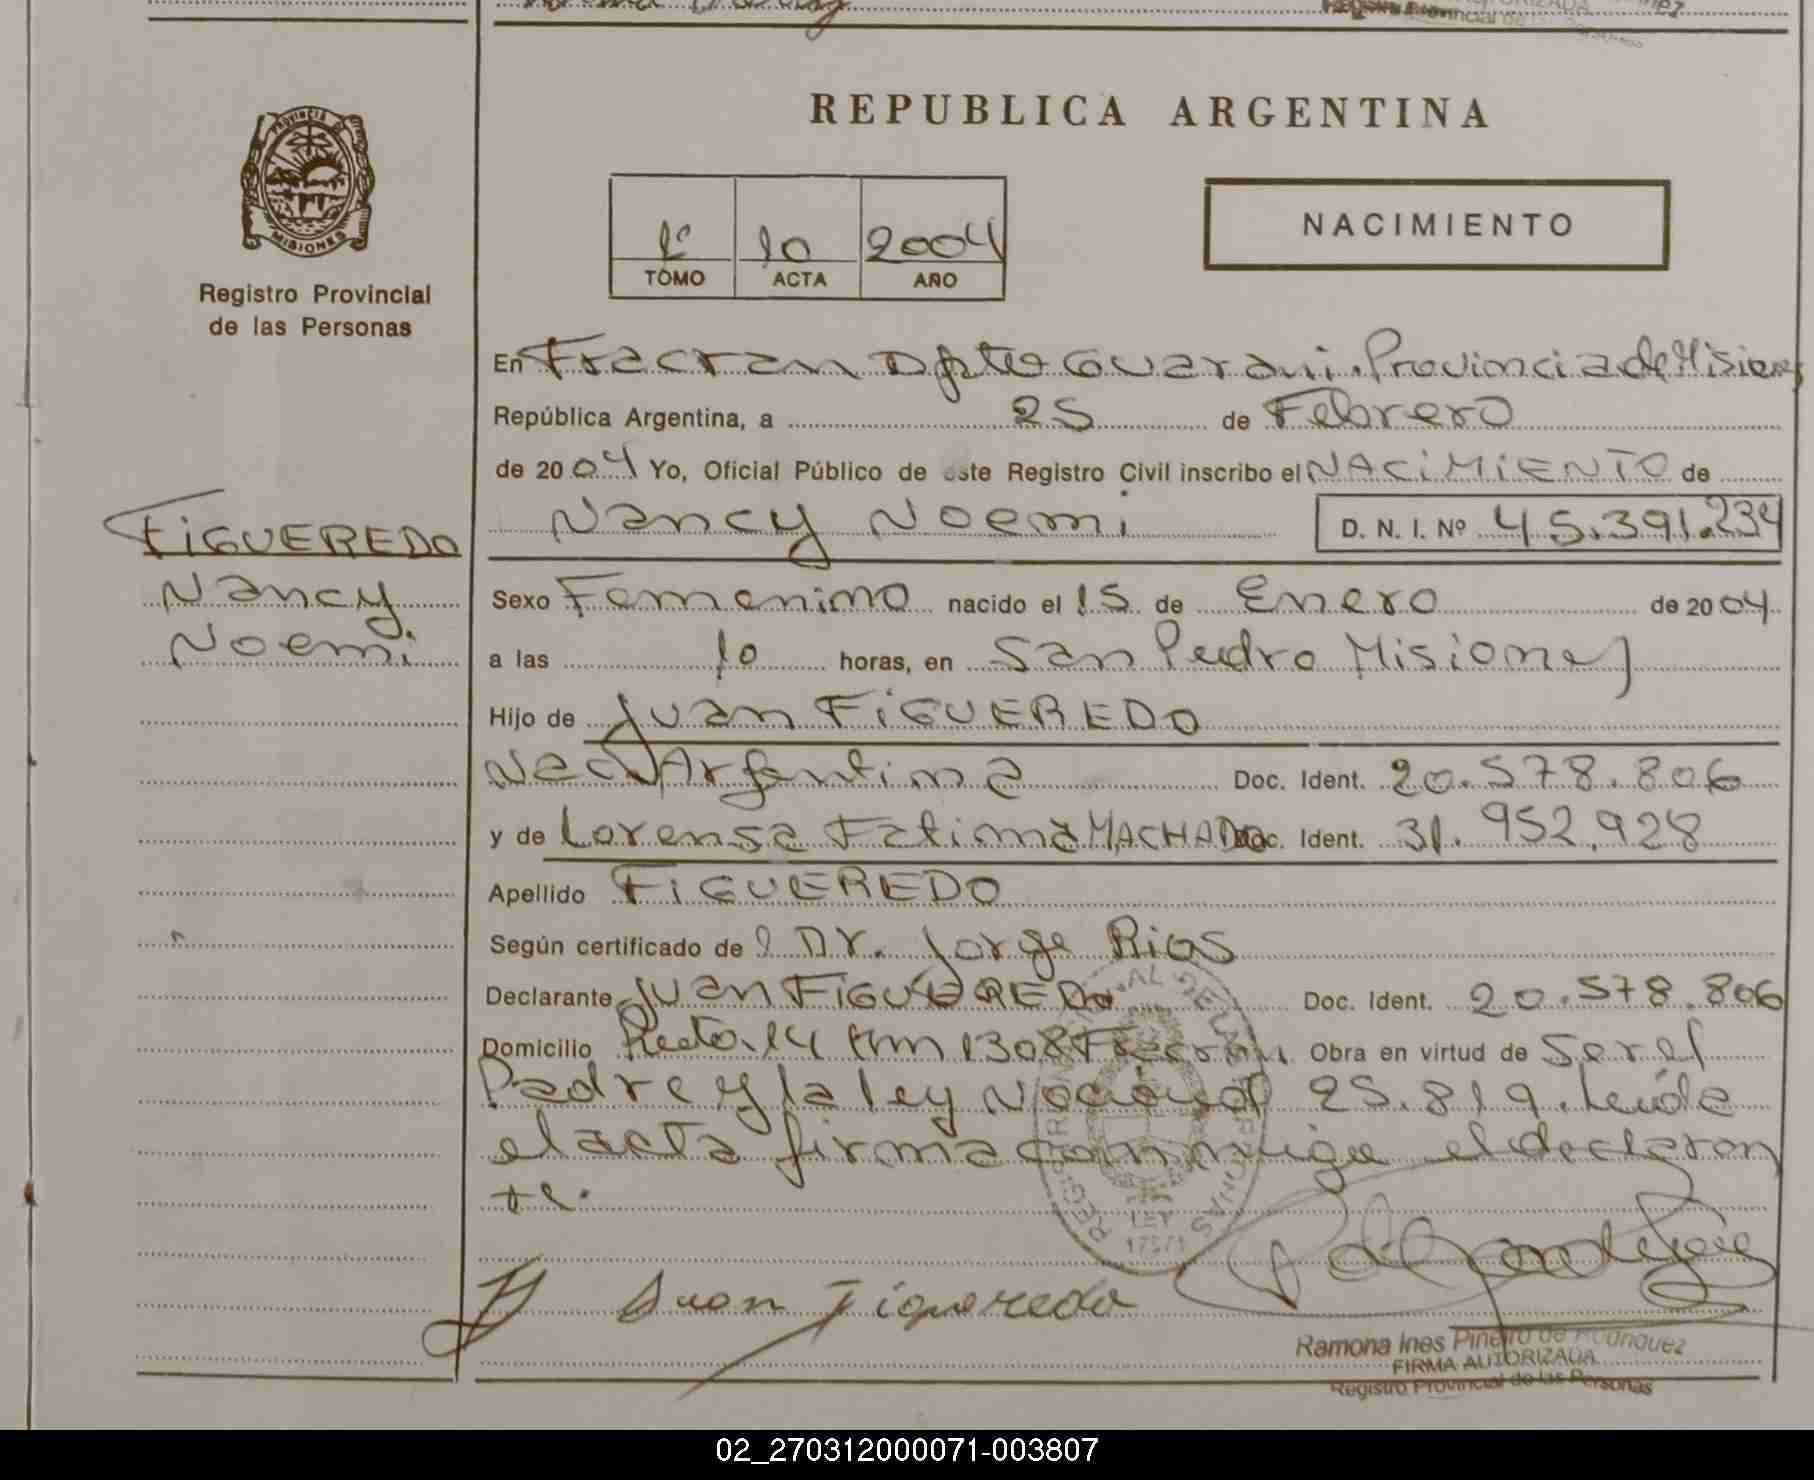 REPUBLICA ARGENTINA
PROVINCIA DE
MISIONES
Registro Provincial
de las Personas
1º 10 2004
TOMO ACTA AÑO
NACIMIENTO
En Fracran Dpto Guarani. Provincia de Misiones
República Argentina, a 25 de Febrero
de 2004 Yo, Oficial Público de este Registro Civil inscribo el NACIMIENTO de
Nancy Noemi D. N. I. Nº 45.391.234
FIGUEREDO
Nancy
Noemi
Sexo Femenino nacido el 15 de Enero de 2004
a las 10 horas, en San Pedro Misiones
Hijo de Juan FIGUEREDO
Nac. Argentina Doc. Ident. 20.578.806
y de Lorensa Fatima MACHADO Doc. Ident. 31.952.928
Apellido FIGUEREDO
Según certificado de Dr. Jorge Rios
Declarante Juan FIGUEREDO Doc. Ident. 20.578.806
Domicilio Ruta 14 Km 1308 Fracran Obra en virtud de Ser el
Padre y la ley Nacional 25.819. Leida
el acta firma conmigo el declaran
te.
LEY
17571
Juan Figueredo
Ramona Ines Piñeiro de Rodriguez
FIRMA AUTORIZADA
Registro Provincial de las Personas
02_270312000071-003807